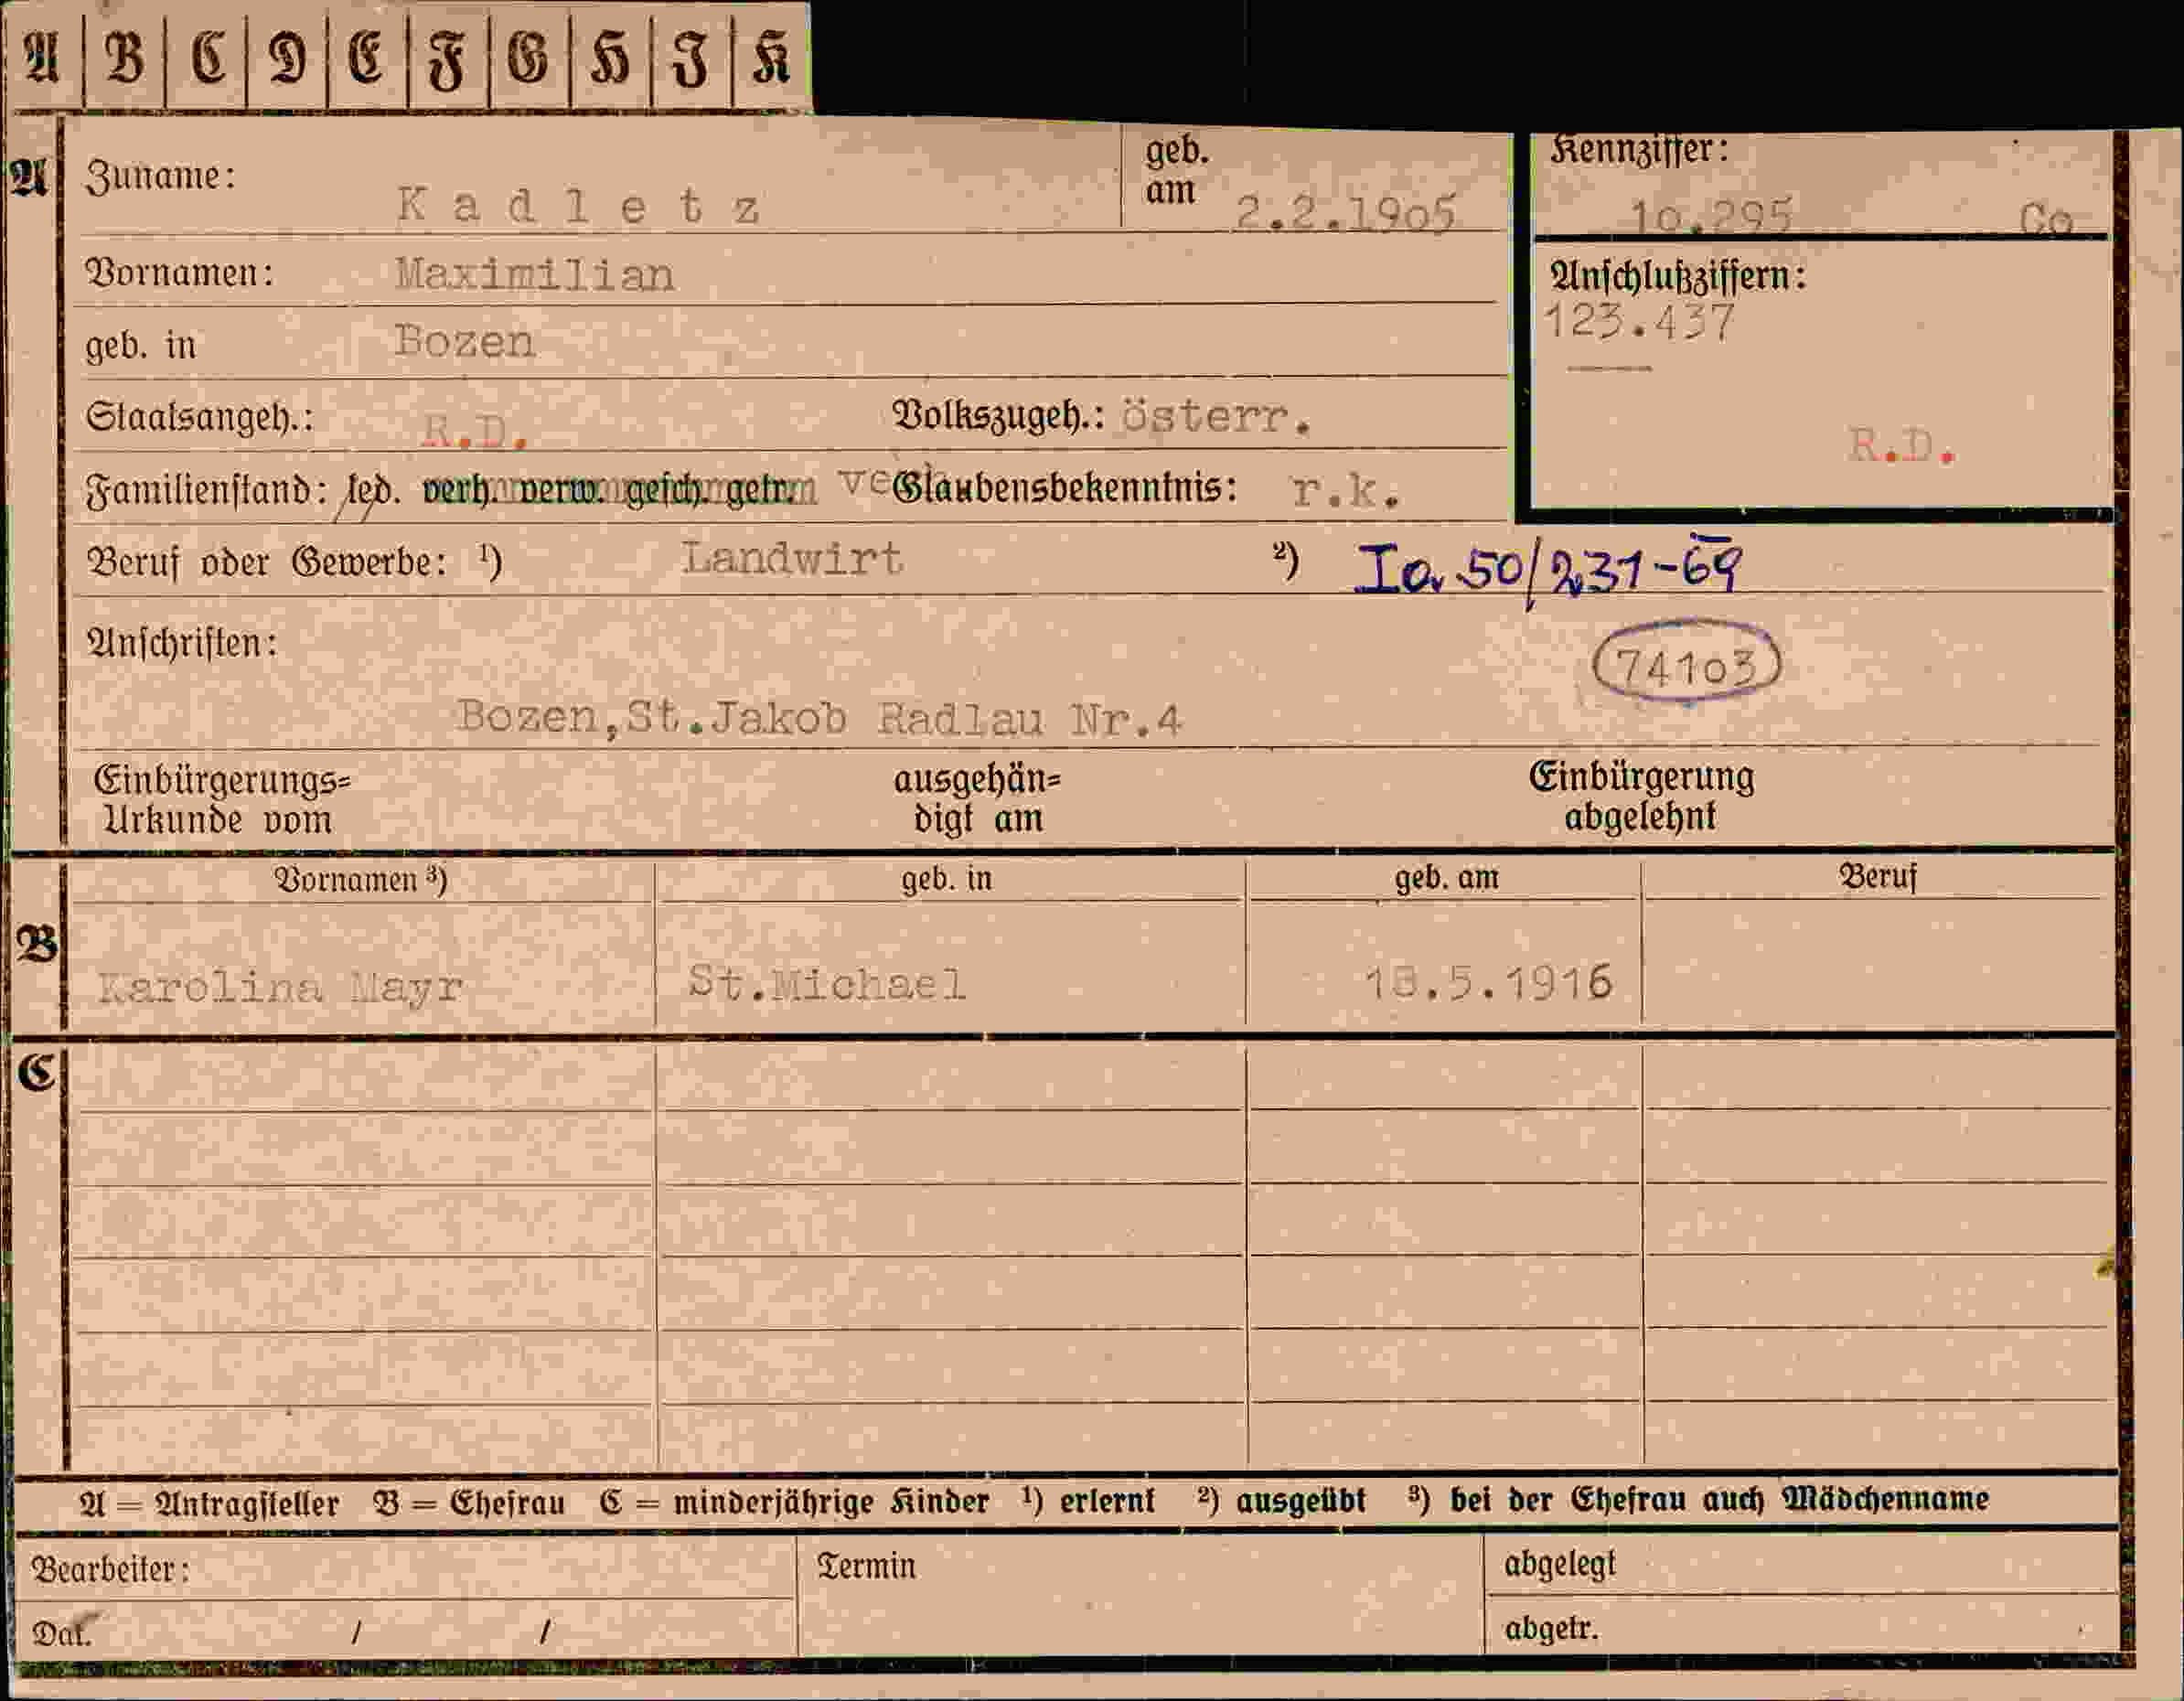 A B C D E F G H I K
A Zuname: Kadletz geb. am 2.2.1905
Kennziffer: 10.295 Co
Vornamen: Maximilian
Anschlußziffern:
123.437
geb. in Bozen
Staatsangeh.: R.D. Volkszugeh.: österr.
R.D.
Familienstand: led. verh. verw. gesch. getr. Glaubensbekenntnis: r.k.
Beruf oder Gewerbe: ¹) Landwirt ²) Ia 50/231-69
Anschriften:
74103
Bozen,St.Jakob Radlau Nr.4
Einbürgerungs=
Urkunde vom
ausgehän=
digt am
Einbürgerung
abgelehnt
Vornamen ³) geb. in geb. am Beruf
B
Karolina Mayr St.Michael 18.5.1916
C
A = Antragsteller B = Ehefrau C = minderjährige Kinder ¹) erlernt ²) ausgeübt ³) bei der Ehefrau auch Mädchenname
Bearbeiter: Termin abgelegt
Dat. / / abgetr.